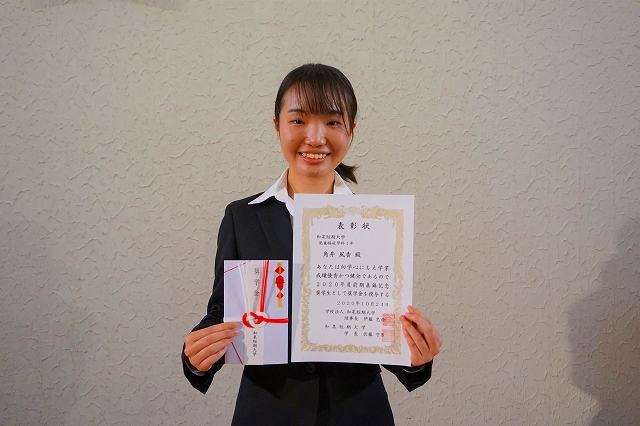 表彰状
和泉短期大学
児童福祉学科1年
角井 風香 殿
あなたは向学心にもえ学業
成績優秀かつ健全であるので
2020年度前期
奨学生として奨学金を授与する
2020年10月24日
学校法人 和泉短期大学
理事長 伊藤
和泉短期大学
学長 佐藤
奨学金
和泉短期大学